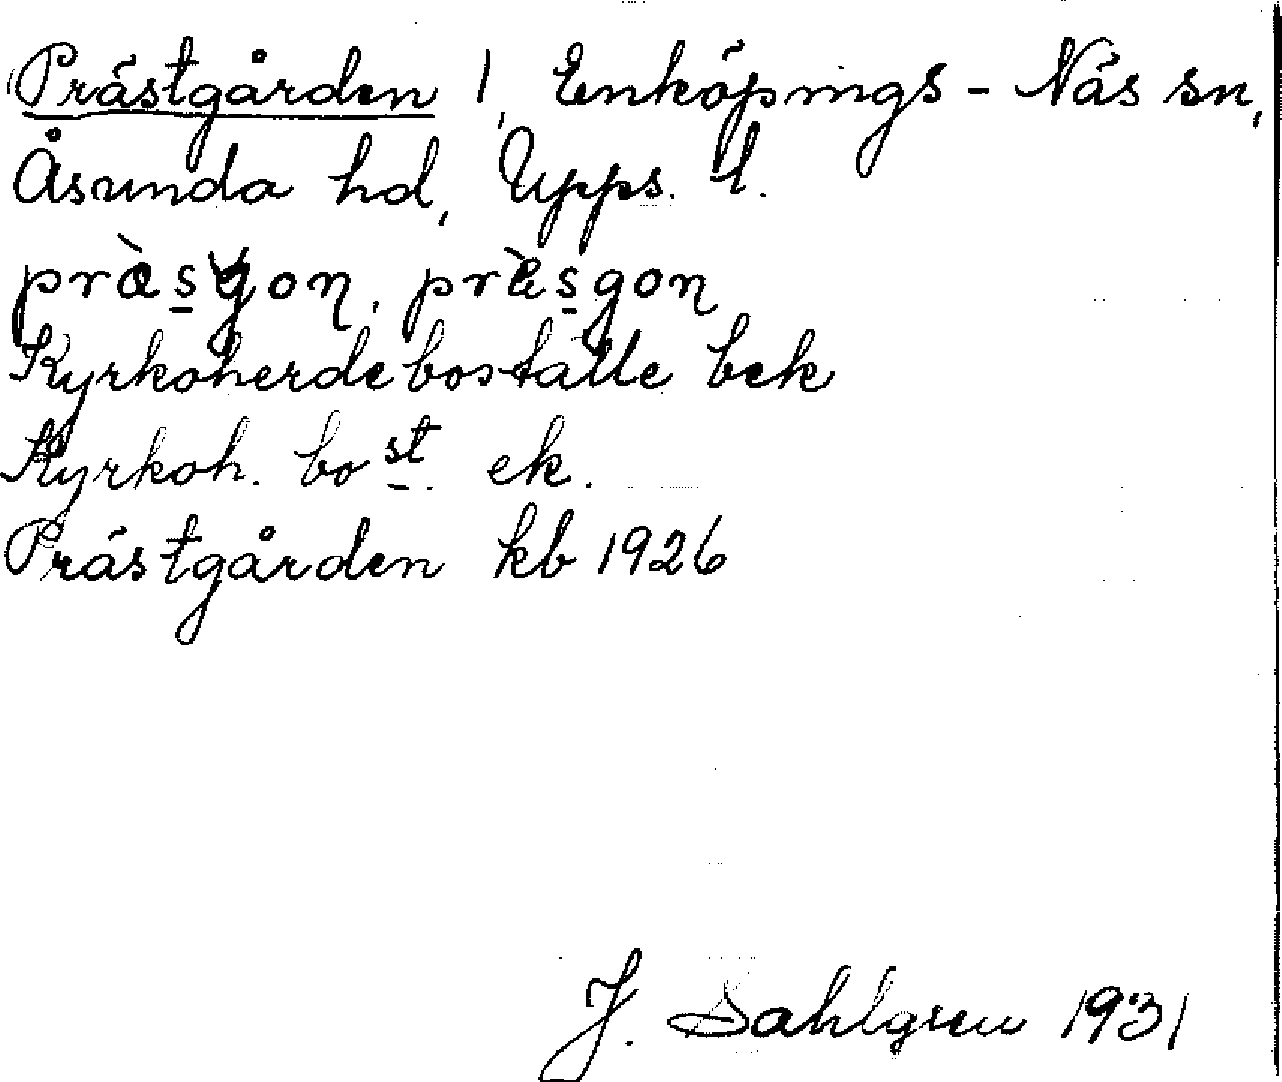 Prästgården 1, Enköpings-Näs sn,
Åsunda hd, Upps. l.
prȁsgon, prèsgon
Kyrkoherdeboställe bek
Kyrkoh. bost. ek.
Prästgården kb 1926
J. Sahlgren 1931